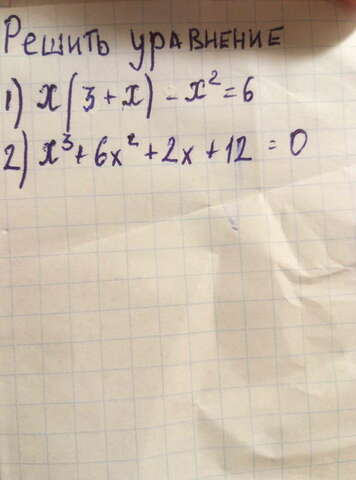 Решить уравнение
1) x(3+x)-x²=6
2) x³+6x²+2x+12=0